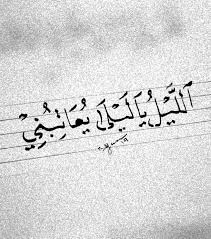 اَللَّيْلُ يَا لَيْلَى يُعَاتِبُنِيْ